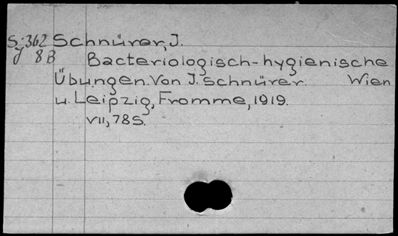 S:362 Schnürer, J.
g 8B Bacteriologisch-hygienische
Übungen. Von J. Schnürer. Wien
u. Leipzig, Fromme, 1919.
VII, 78 S.